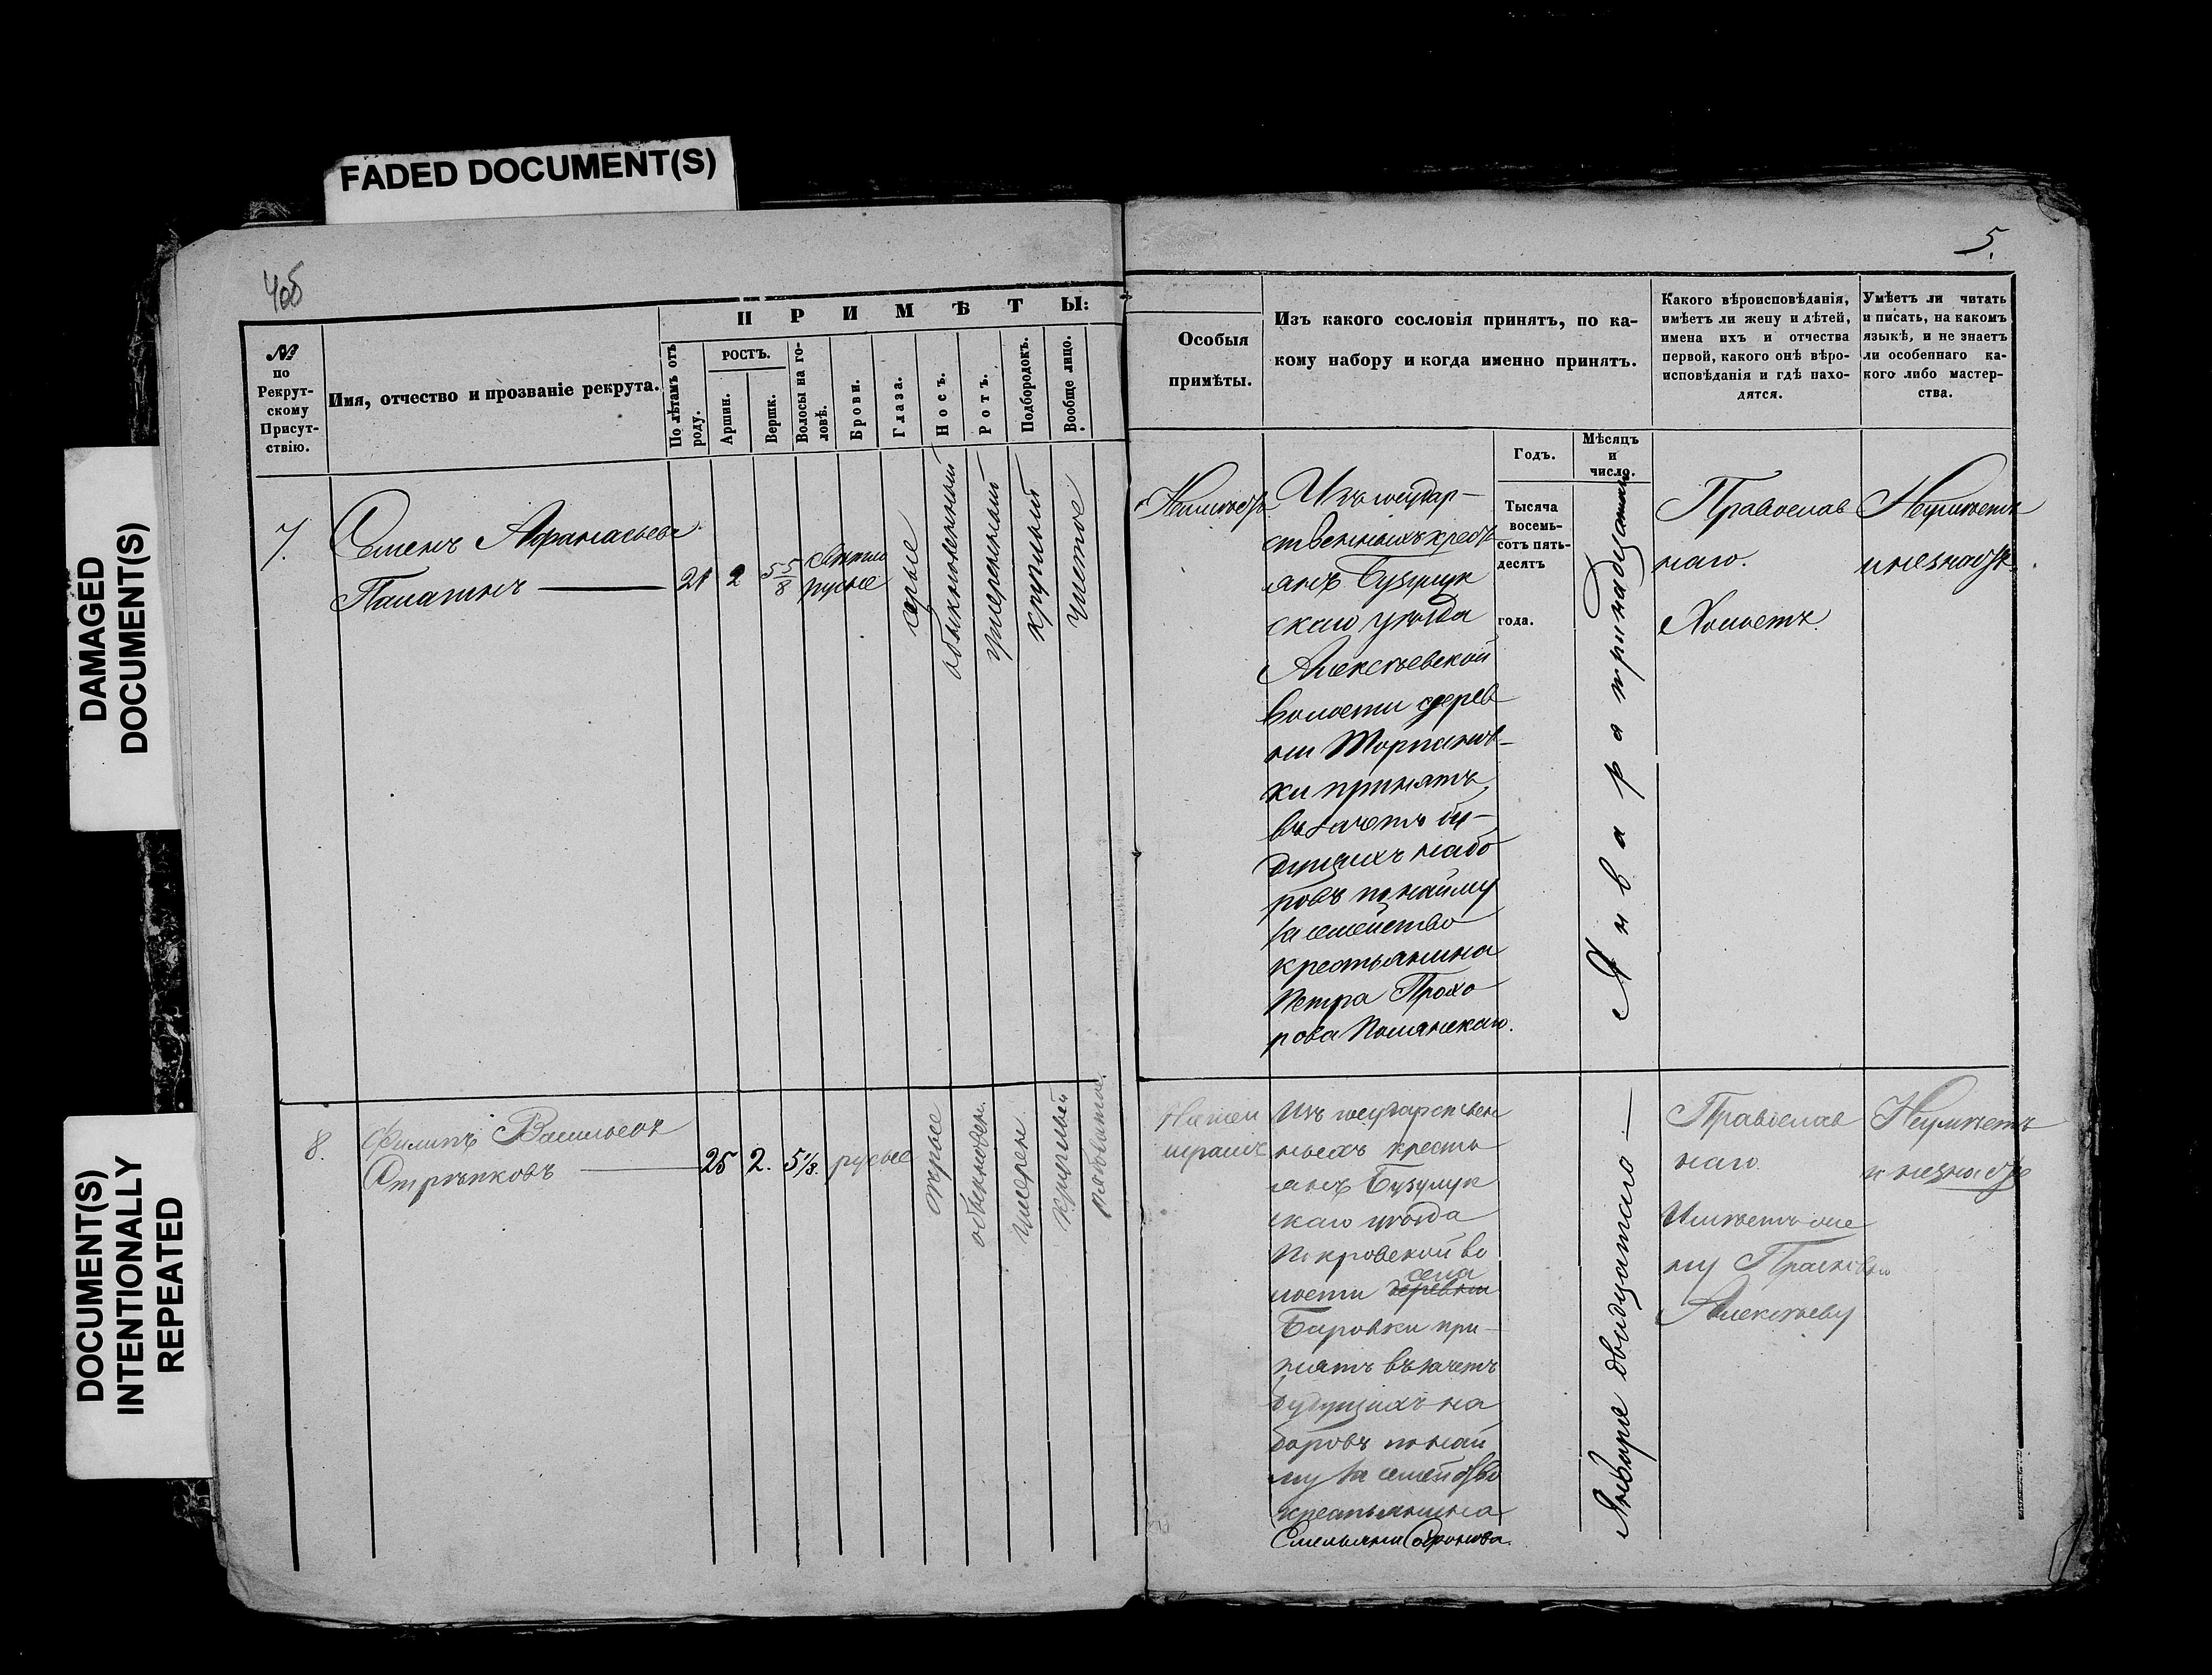 FADED DOCUMENT(S)
DAMAGED
DOCUMENT(S)
DOCUMENT(S)
INTENTIONALLY
REPEATED
5.
№
по
Рекрут-
скому
Присут-
ствію.
Имя, отчество и прозваніе рекрута.
ПРИМѢТЫ:
По лѣтамъ отъ
роду.
РОСТЪ.
Аршин.
Вершк.
Волосы на го-
ловѣ.
Брови.
Глаза.
Носъ.
Ротъ.
Подбородокъ.
Вообще лицо.
Особыя
примѣты.
Изъ какого сословія принятъ, по ка-
кому набору и когда именно принятъ.
Какого вѣроисповѣданія,
имѣетъ ли жену и дѣтей,
имена ихъ и отчества
первой, какого онѣ вѣро-
исповѣданія и гдѣ нахо-
дятся.
Умѣетъ ли читать
и писать, на какомъ
языкѣ, и не знаетъ
ли особеннаго ка-
кого либо мастер-
ства.
Годъ.
Мѣсяцъ
и
число.
7.
Семенъ Афанасьевъ
21
2
5 5/8
свѣтло
русые
серые
обыкновенный
умеренный
круглый
чистое
Изъ государ-
ственныхъ кресть
янъ Бузулук
скаго уѣзда
Алексѣевской
волости дерев
ни
ки принятъ
въ зачетъ бу-
дущихъ набо
ровъ по найму
за семейство
крестьянина
Петра Прохо
рова
Тысяча
восемь-
сотъ пять-
десятъ
года.
Января тринадцатаго
Православ
наго.
Холостъ.
Неумѣетъ
и незнаетъ.
8.
Филипъ Васильевъ
Стрѣлковъ
25
2.
5 1/8.
русые
серые
обыкновен.
умерен
круглый
рябоватое.
Изъ государствен
ныхъ кресть
янъ Бузулук
скаго уѣзда
Покровской во
лости деревни
села
Баровки при-
нятъ въ зачетъ
будущихъ на
боровъ по най
му за семейство
крестьянина
Емельяна Сафронова.
Января двадцатаго
Православ
наго.
Имѣетъ же
ну Прасковью
Алексѣеву
Неумѣетъ
и незнаетъ